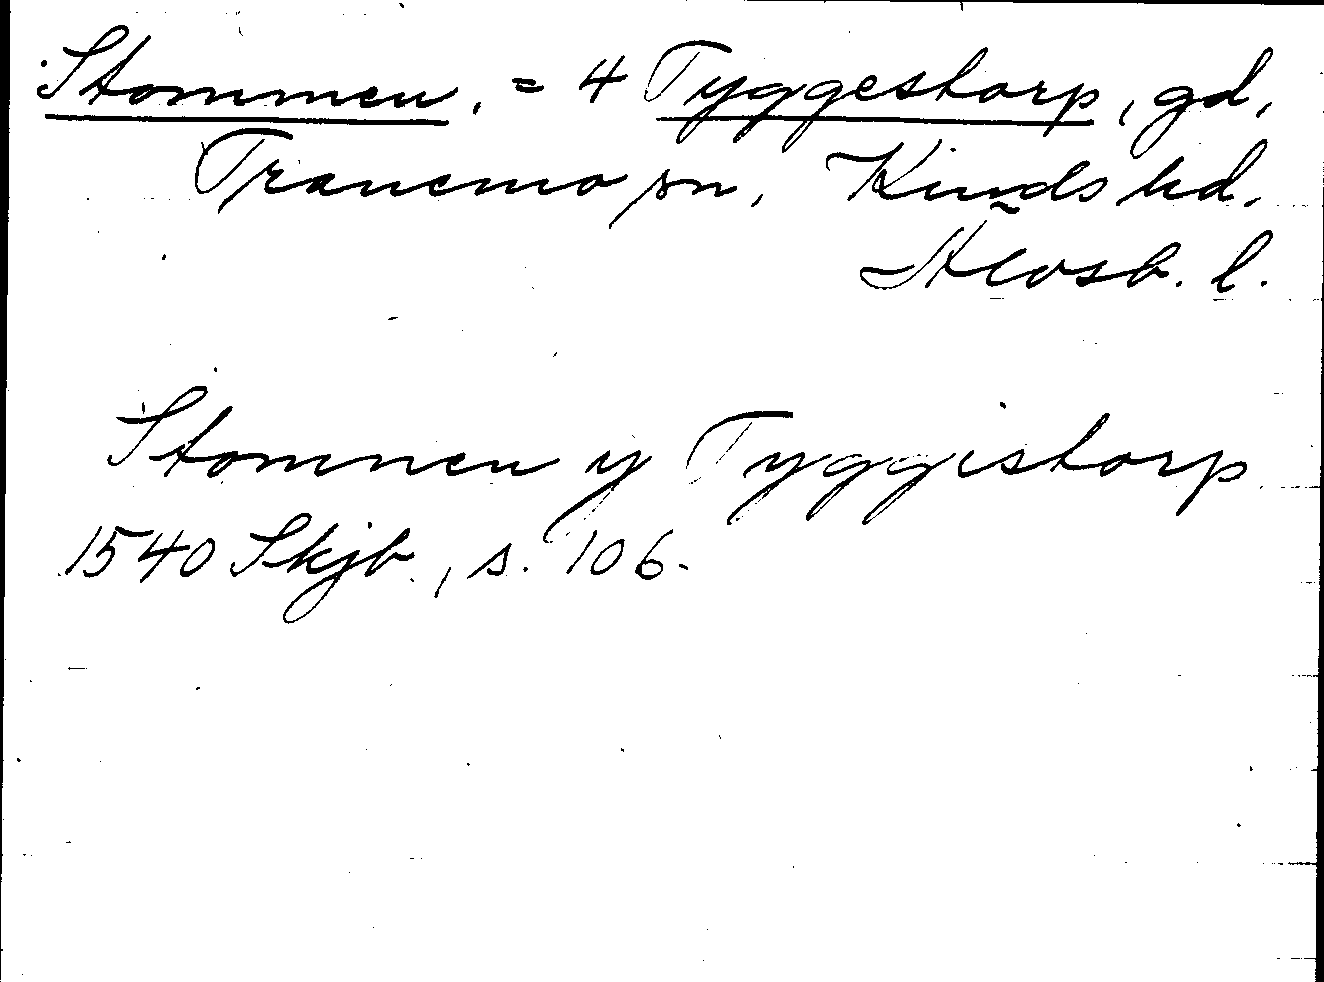 Stommen, = 4 Tyggestorp, gd,
Tranemo sn, Kinds hd.
Älvsb. l.
Stomnen y Tyggistorp
1540 Skjb., s. 106.